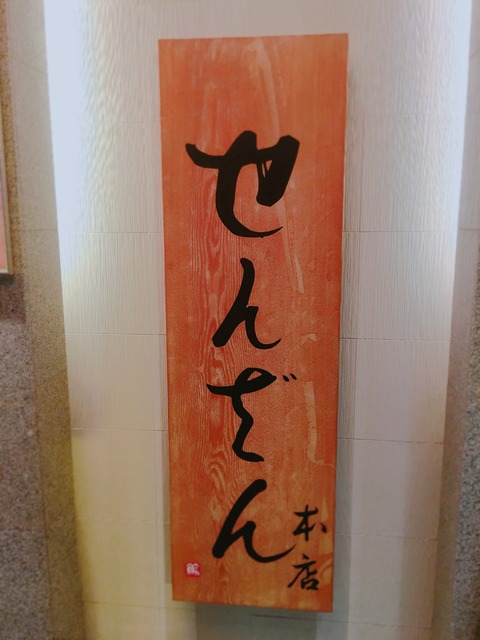 せんざん
本店